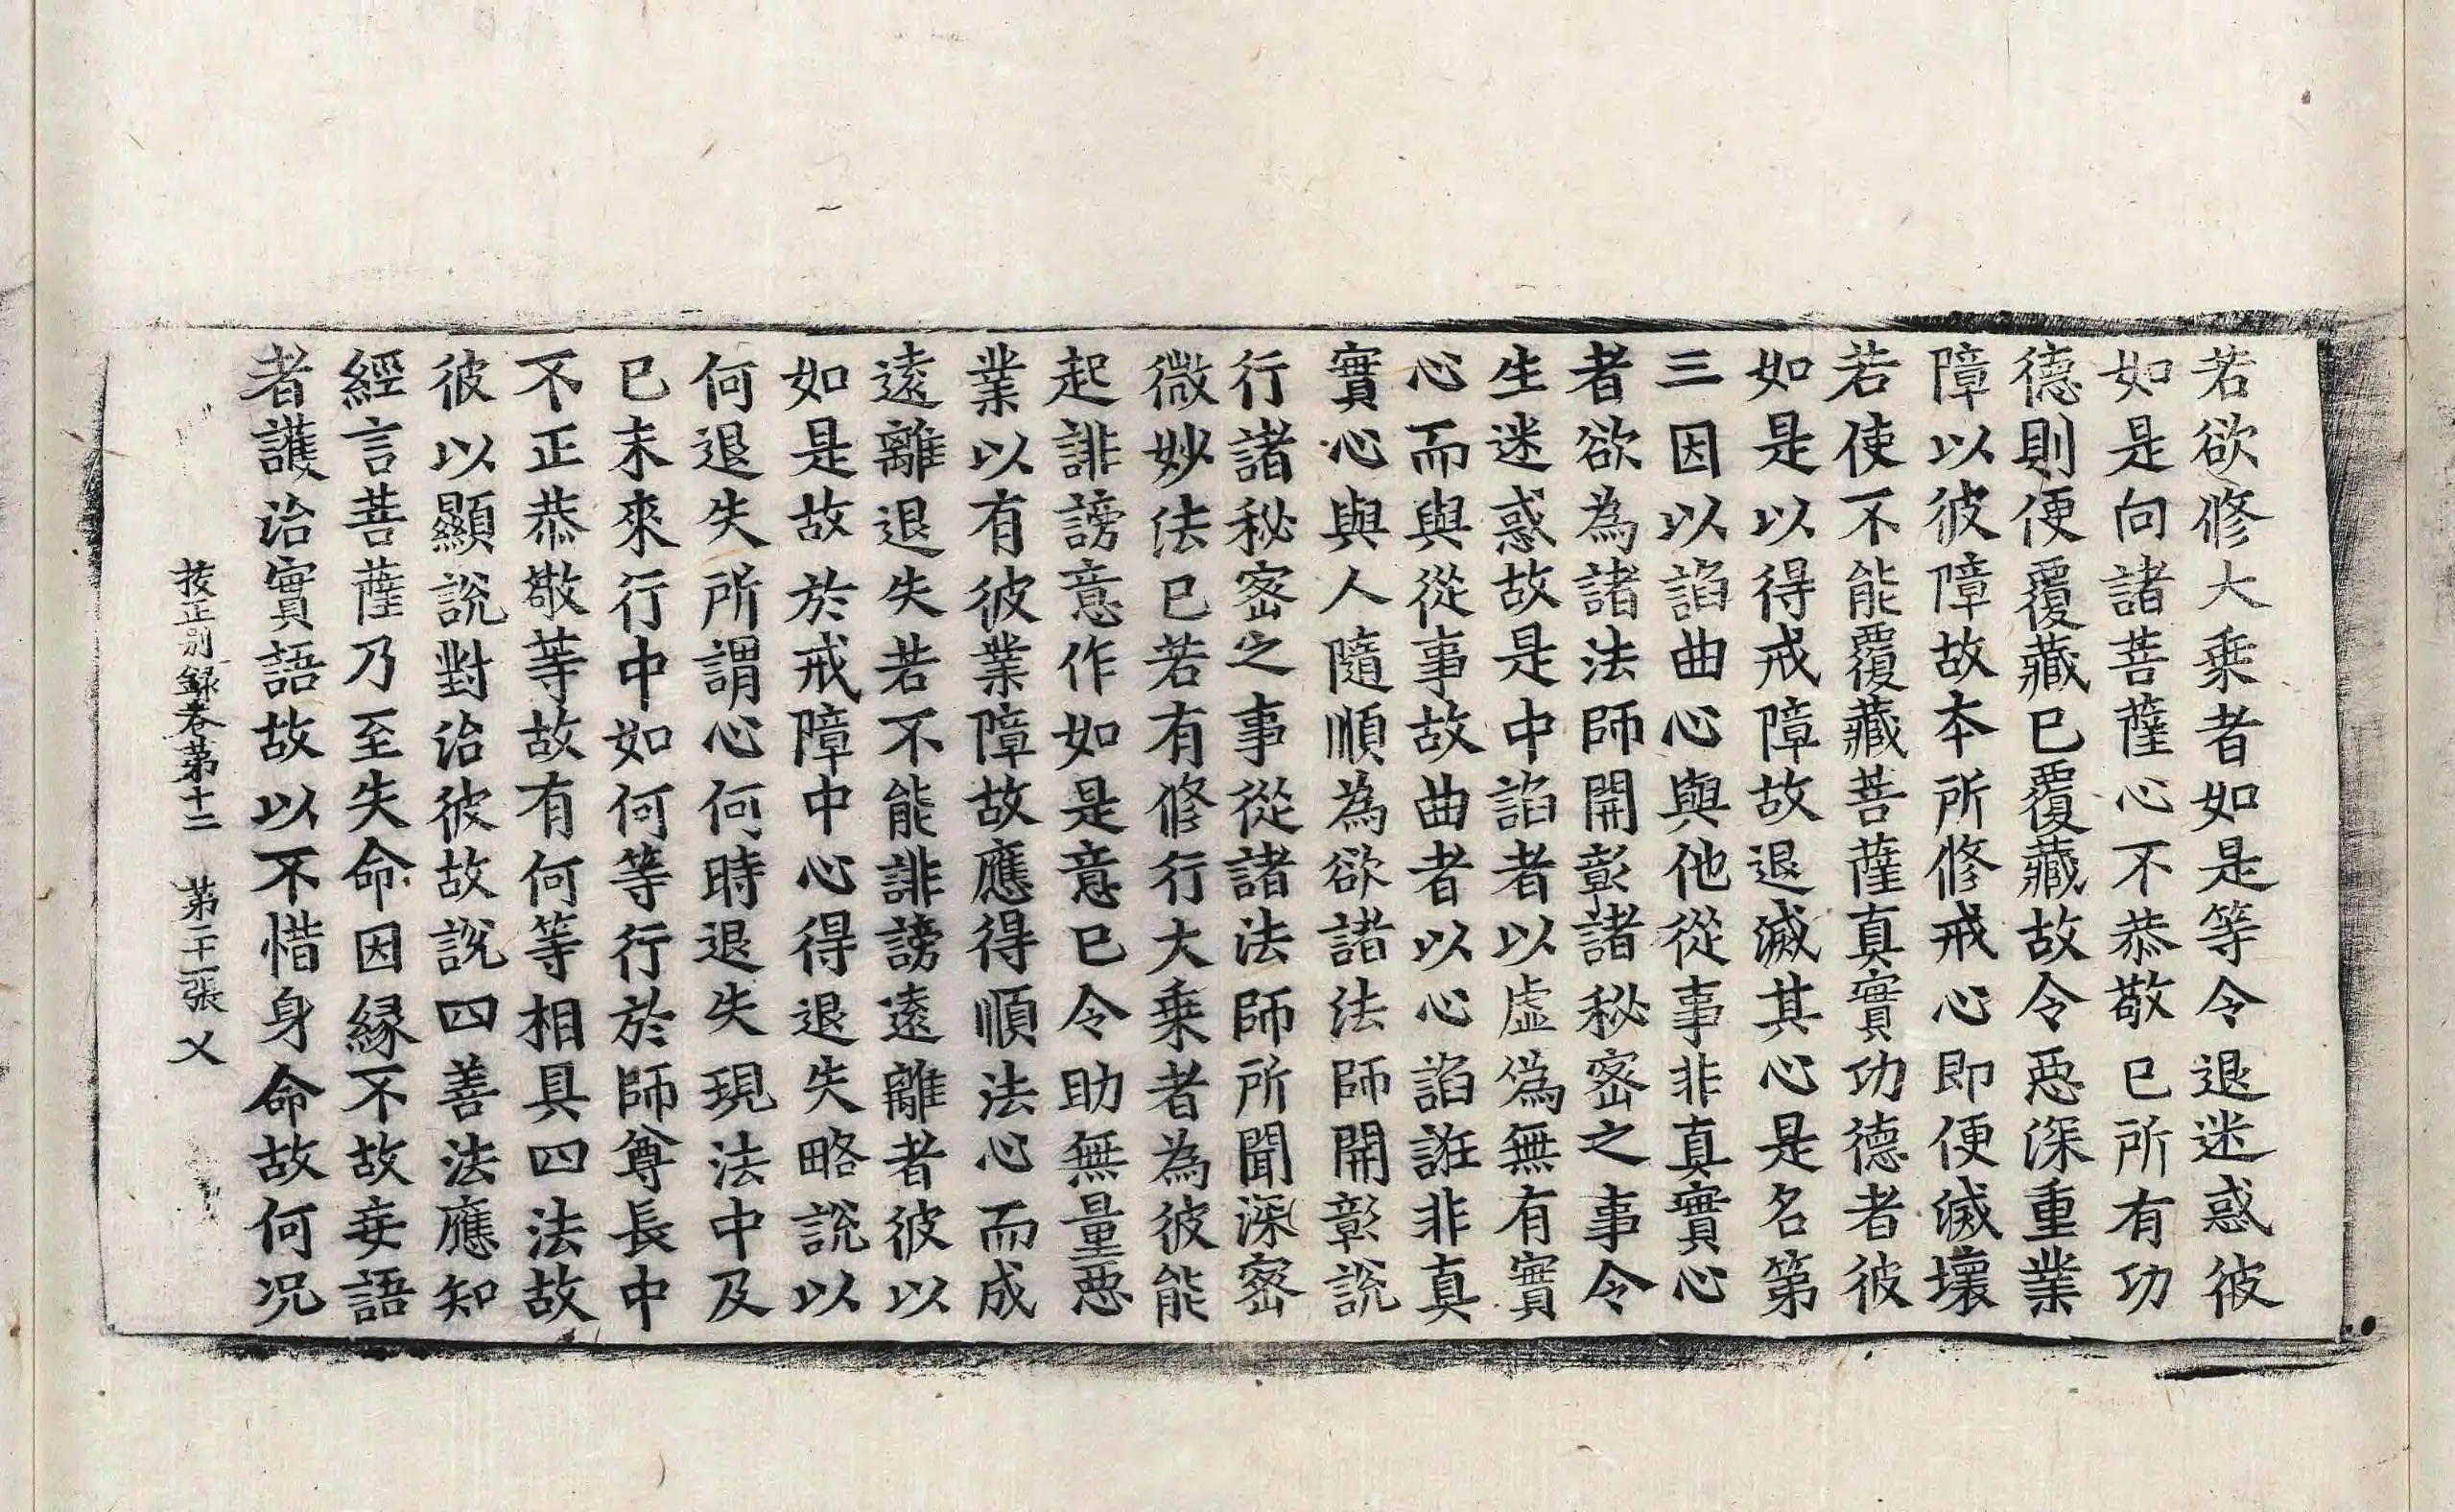 若欲修大乘者如是等令退迷惑彼
如是向諸菩薩心不恭敬已所有功
德則便覆藏已覆藏故令惡深重業
障以彼障故本所修戒心即便滅壞
若使不能覆藏菩薩真實功德者彼
如是以得戒障故退滅其心是名第
三因以諂曲心與他從事非真實心
者欲為諸法師開彰諸秘密之事令
生迷惑故是中諂者以虛偽無有實
心而與從事故曲者以心諂誑非真
實心與人隨順為欲諸法師開彰說
行諸秘密之事從諸法師所聞深密
微妙法已若有修行大乘者為彼能
起誹謗意作如是意已令助無量惡
業以有彼業障故應得順法心而成
遠離退失若不能誹謗遠離者彼以
如是故於戒障中心得退失略說以
何退失所謂心何時退失現法中及
已末來行中如何等行於師尊長中
不正恭敬等故有何等相具四法故
彼以顯說對治彼故說四善法應知
經言菩薩乃至失命因緣不故妄語
者護治實語故以不惜身命故何況
挍正別録卷第十二 第二十一張 乂